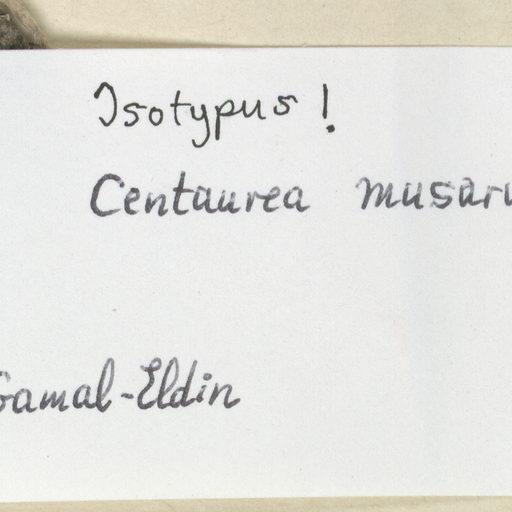 Isotypus !
Centaurea musaru
Gamal-Eldin